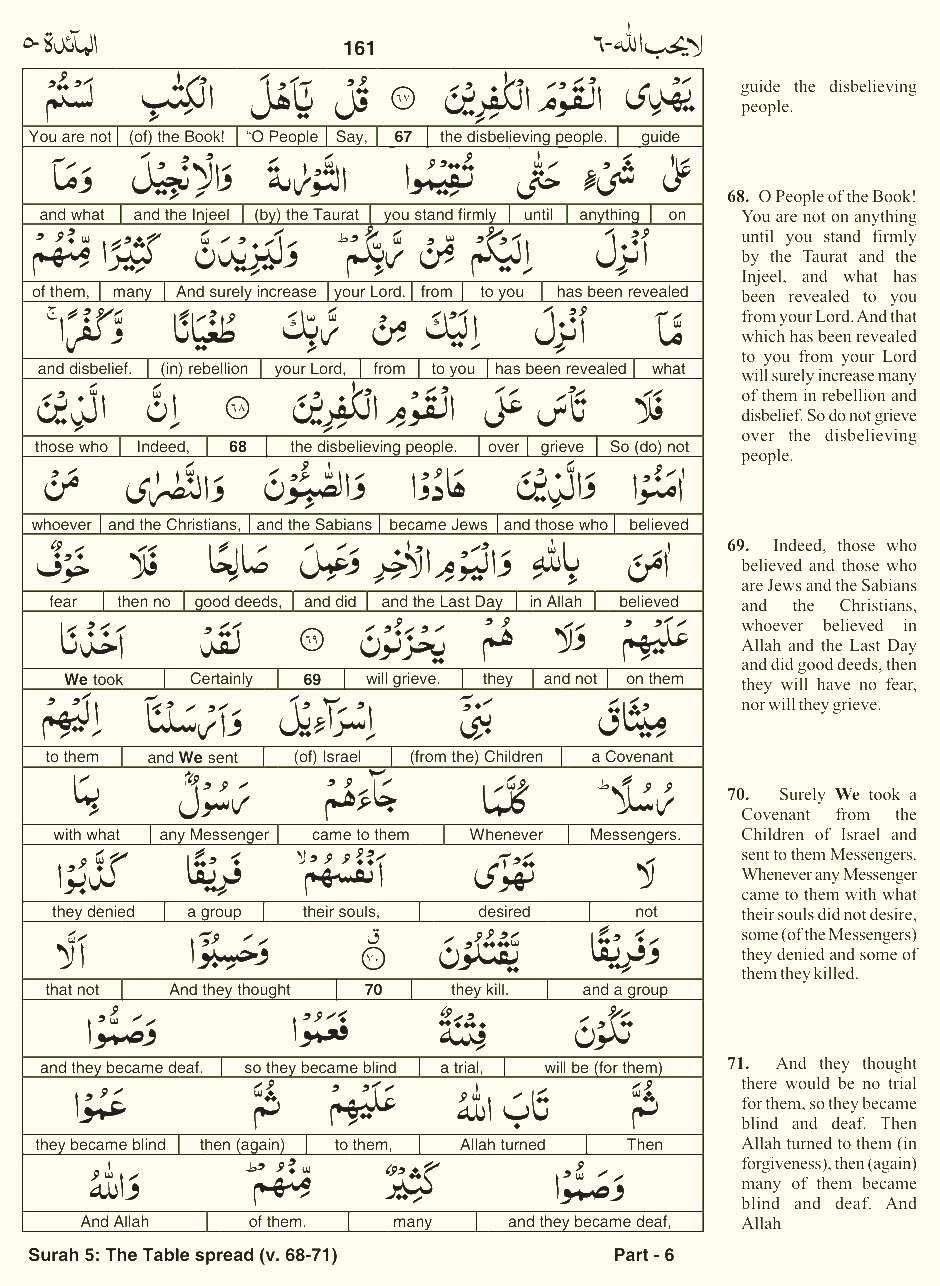 المآئدة-٥ 161 لا يحب الله-٦
يَهْدِى الْقَوْمَ الْكٰفِرِيْنَ ﴿٦٧﴾ قُلْ يٰٓاَهْلَ الْكِتٰبِ لَسْتُمْ
You are not | (of) the Book! | “O People | Say, | 67 | the disbelieving people. | guide
عَلٰى شَىْءٍ حَتّٰى تُقِيْمُوا التَّوْرٰىةَ وَالْاِنْجِيْلَ وَمَآ
and what | and the Injeel | (by) the Taurat | you stand firmly | until | anything | on
اُنْزِلَ اِلَيْكُمْ مِّنْ رَّبِّكُمْ ؕ وَلَيَزِيْدَنَّ كَثِيْرًا مِّنْهُمْ
of them, | many | And surely increase | your Lord. | from | to you | has been revealed
مَّآ اُنْزِلَ اِلَيْكَ مِنْ رَّبِّكَ طُغْيَانًا وَّكُفْرًا ۚ
and disbelief. | (in) rebellion | your Lord, | from | to you | has been revealed | what
فَلَا تَاْسَ عَلَى الْقَوْمِ الْكٰفِرِيْنَ ﴿٦٨﴾ اِنَّ الَّذِيْنَ
those who | Indeed, | 68 | the disbelieving people. | over | grieve | So (do) not
اٰمَنُوْا وَالَّذِيْنَ هَادُوْا وَالصّٰبِـُٔوْنَ وَالنَّصٰرٰى مَنْ
whoever | and the Christians, | and the Sabians | became Jews | and those who | believed
اٰمَنَ بِاللّٰهِ وَالْيَوْمِ الْاٰخِرِ وَعَمِلَ صَالِحًا فَلَا خَوْفٌ
fear | then no | good deeds, | and did | and the Last Day | in Allah | believed
عَلَيْهِمْ وَلَا هُمْ يَحْزَنُوْنَ ﴿٦٩﴾ لَقَدْ اَخَذْنَا
We took | Certainly | 69 | will grieve. | they | and not | on them
مِيْثَاقَ بَنِىْٓ اِسْرَآءِيْلَ وَاَرْسَلْنَآ اِلَيْهِمْ
to them | and We sent | (of) Israel | (from the) Children | a Covenant
رُسُلًا ؕ كُلَّمَا جَآءَهُمْ رَسُوْلٌۢ بِمَا
with what | any Messenger | came to them | Whenever | Messengers.
لَا تَهْوٰٓى اَنْفُسُهُمْ ۙ فَرِيْقًا كَذَّبُوْا
they denied | a group | their souls, | desired | not
وَفَرِيْقًا يَّقْتُلُوْنَ ﴿٧٠﴾ ق وَحَسِبُوْٓا اَلَّا
that not | And they thought | 70 | they kill. | and a group
تَكُوْنَ فِتْنَةٌ فَعَمُوْا وَصَمُّوْا
and they became deaf. | so they became blind | a trial, | will be (for them)
ثُمَّ تَابَ اللّٰهُ عَلَيْهِمْ ثُمَّ عَمُوْا
they became blind | then (again) | to them, | Allah turned | Then
وَصَمُّوْا كَثِيْرٌ مِّنْهُمْ ؕ وَاللّٰهُ
And Allah | of them. | many | and they became deaf,
guide the disbelieving
people.
68. O People of the Book!
You are not on anything
until you stand firmly
by the Taurat and the
Injeel, and what has
been revealed to you
from your Lord. And that
which has been revealed
to you from your Lord
will surely increase many
of them in rebellion and
disbelief. So do not grieve
over the disbelieving
people.
69. Indeed, those who
believed and those who
are Jews and the Sabians
and the Christians,
whoever believed in
Allah and the Last Day
and did good deeds, then
they will have no fear,
nor will they grieve.
70. Surely We took a
Covenant from the
Children of Israel and
sent to them Messengers.
Whenever any Messenger
came to them with what
their souls did not desire,
some (of the Messengers)
they denied and some of
them they killed.
71. And they thought
there would be no trial
for them, so they became
blind and deaf. Then
Allah turned to them (in
forgiveness), then (again)
many of them became
blind and deaf. And
Allah
Surah 5: The Table spread (v. 68-71) Part - 6